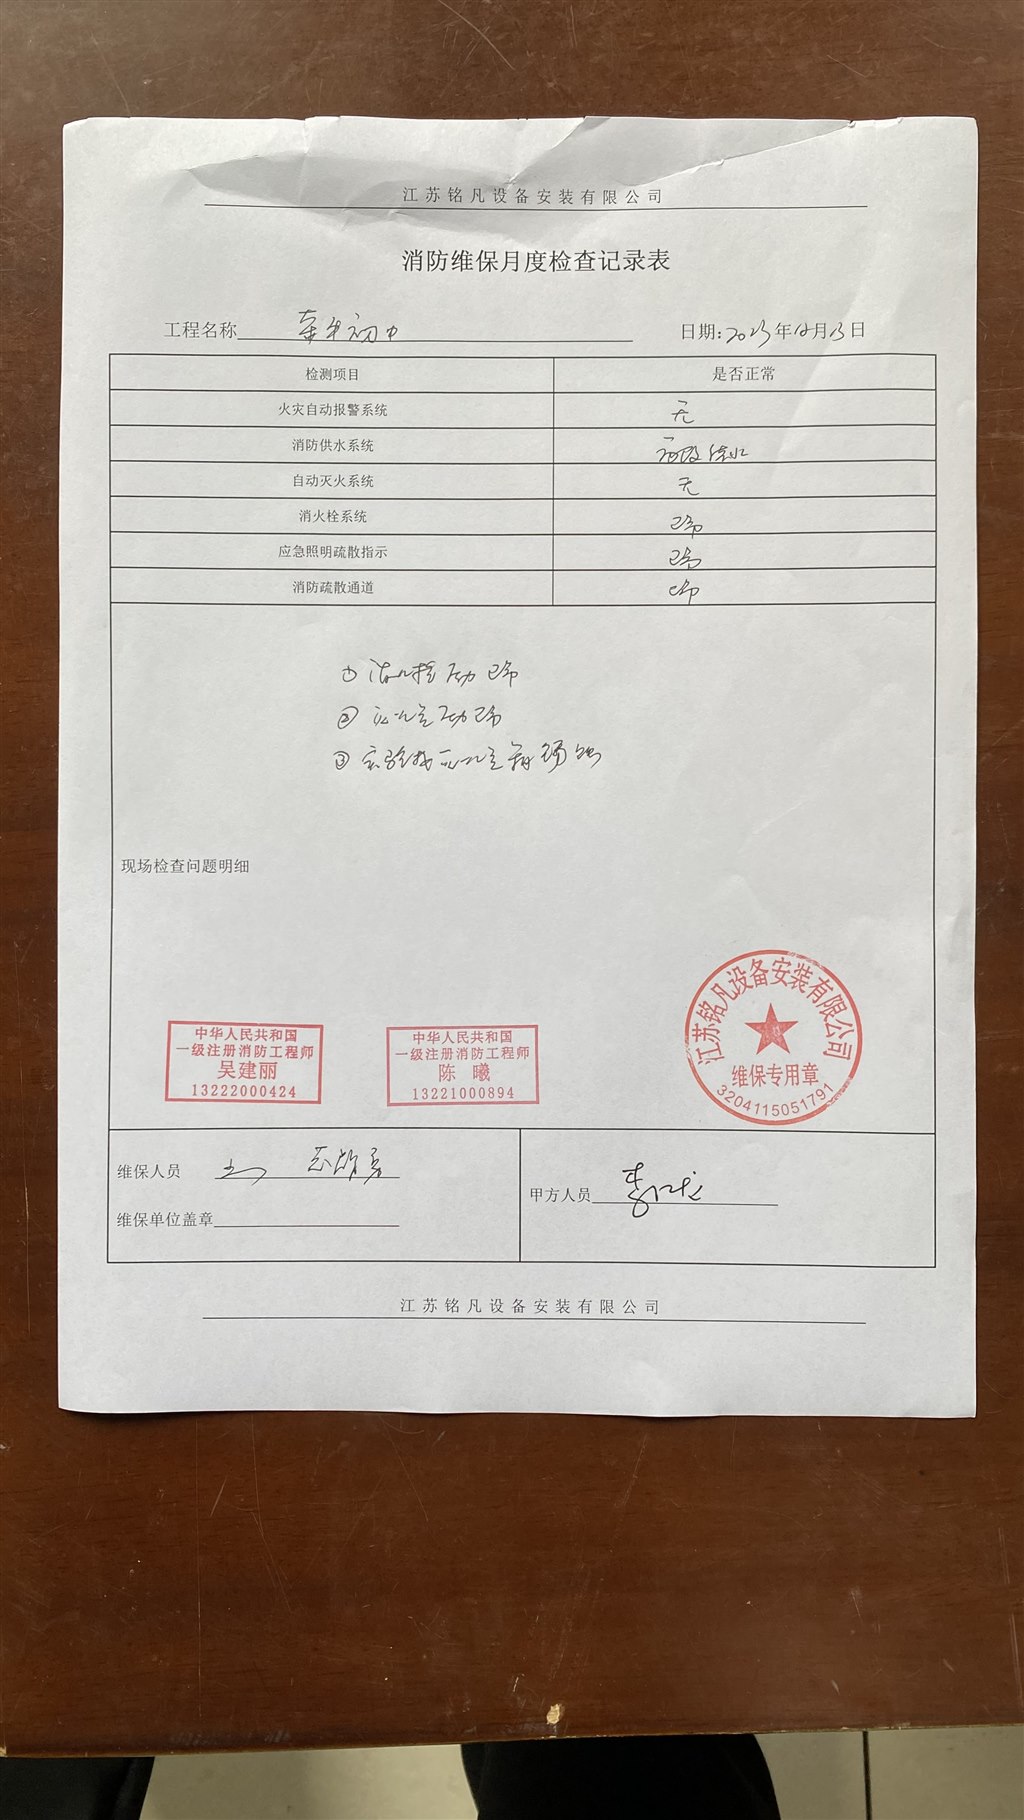 江苏铭凡设备安装有限公司
消防维保月度检查记录表
工程名称 初中 日期: 2023年12月13日
检测项目 是否正常
火灾自动报警系统 无
消防供水系统 市政供水
自动灭火系统 无
消火栓系统 正常
应急照明疏散指示 正常
消防疏散通道 正常
① 正常
② 正常
③
现场检查问题明细
江苏铭凡设备安装有限公司
维保专用章
3204115051791
中华人民共和国
一级注册消防工程师
吴建丽
13222000424
中华人民共和国
一级注册消防工程师
陈曦
13221000894
维保人员
甲方人员
维保单位盖章
江苏铭凡设备安装有限公司